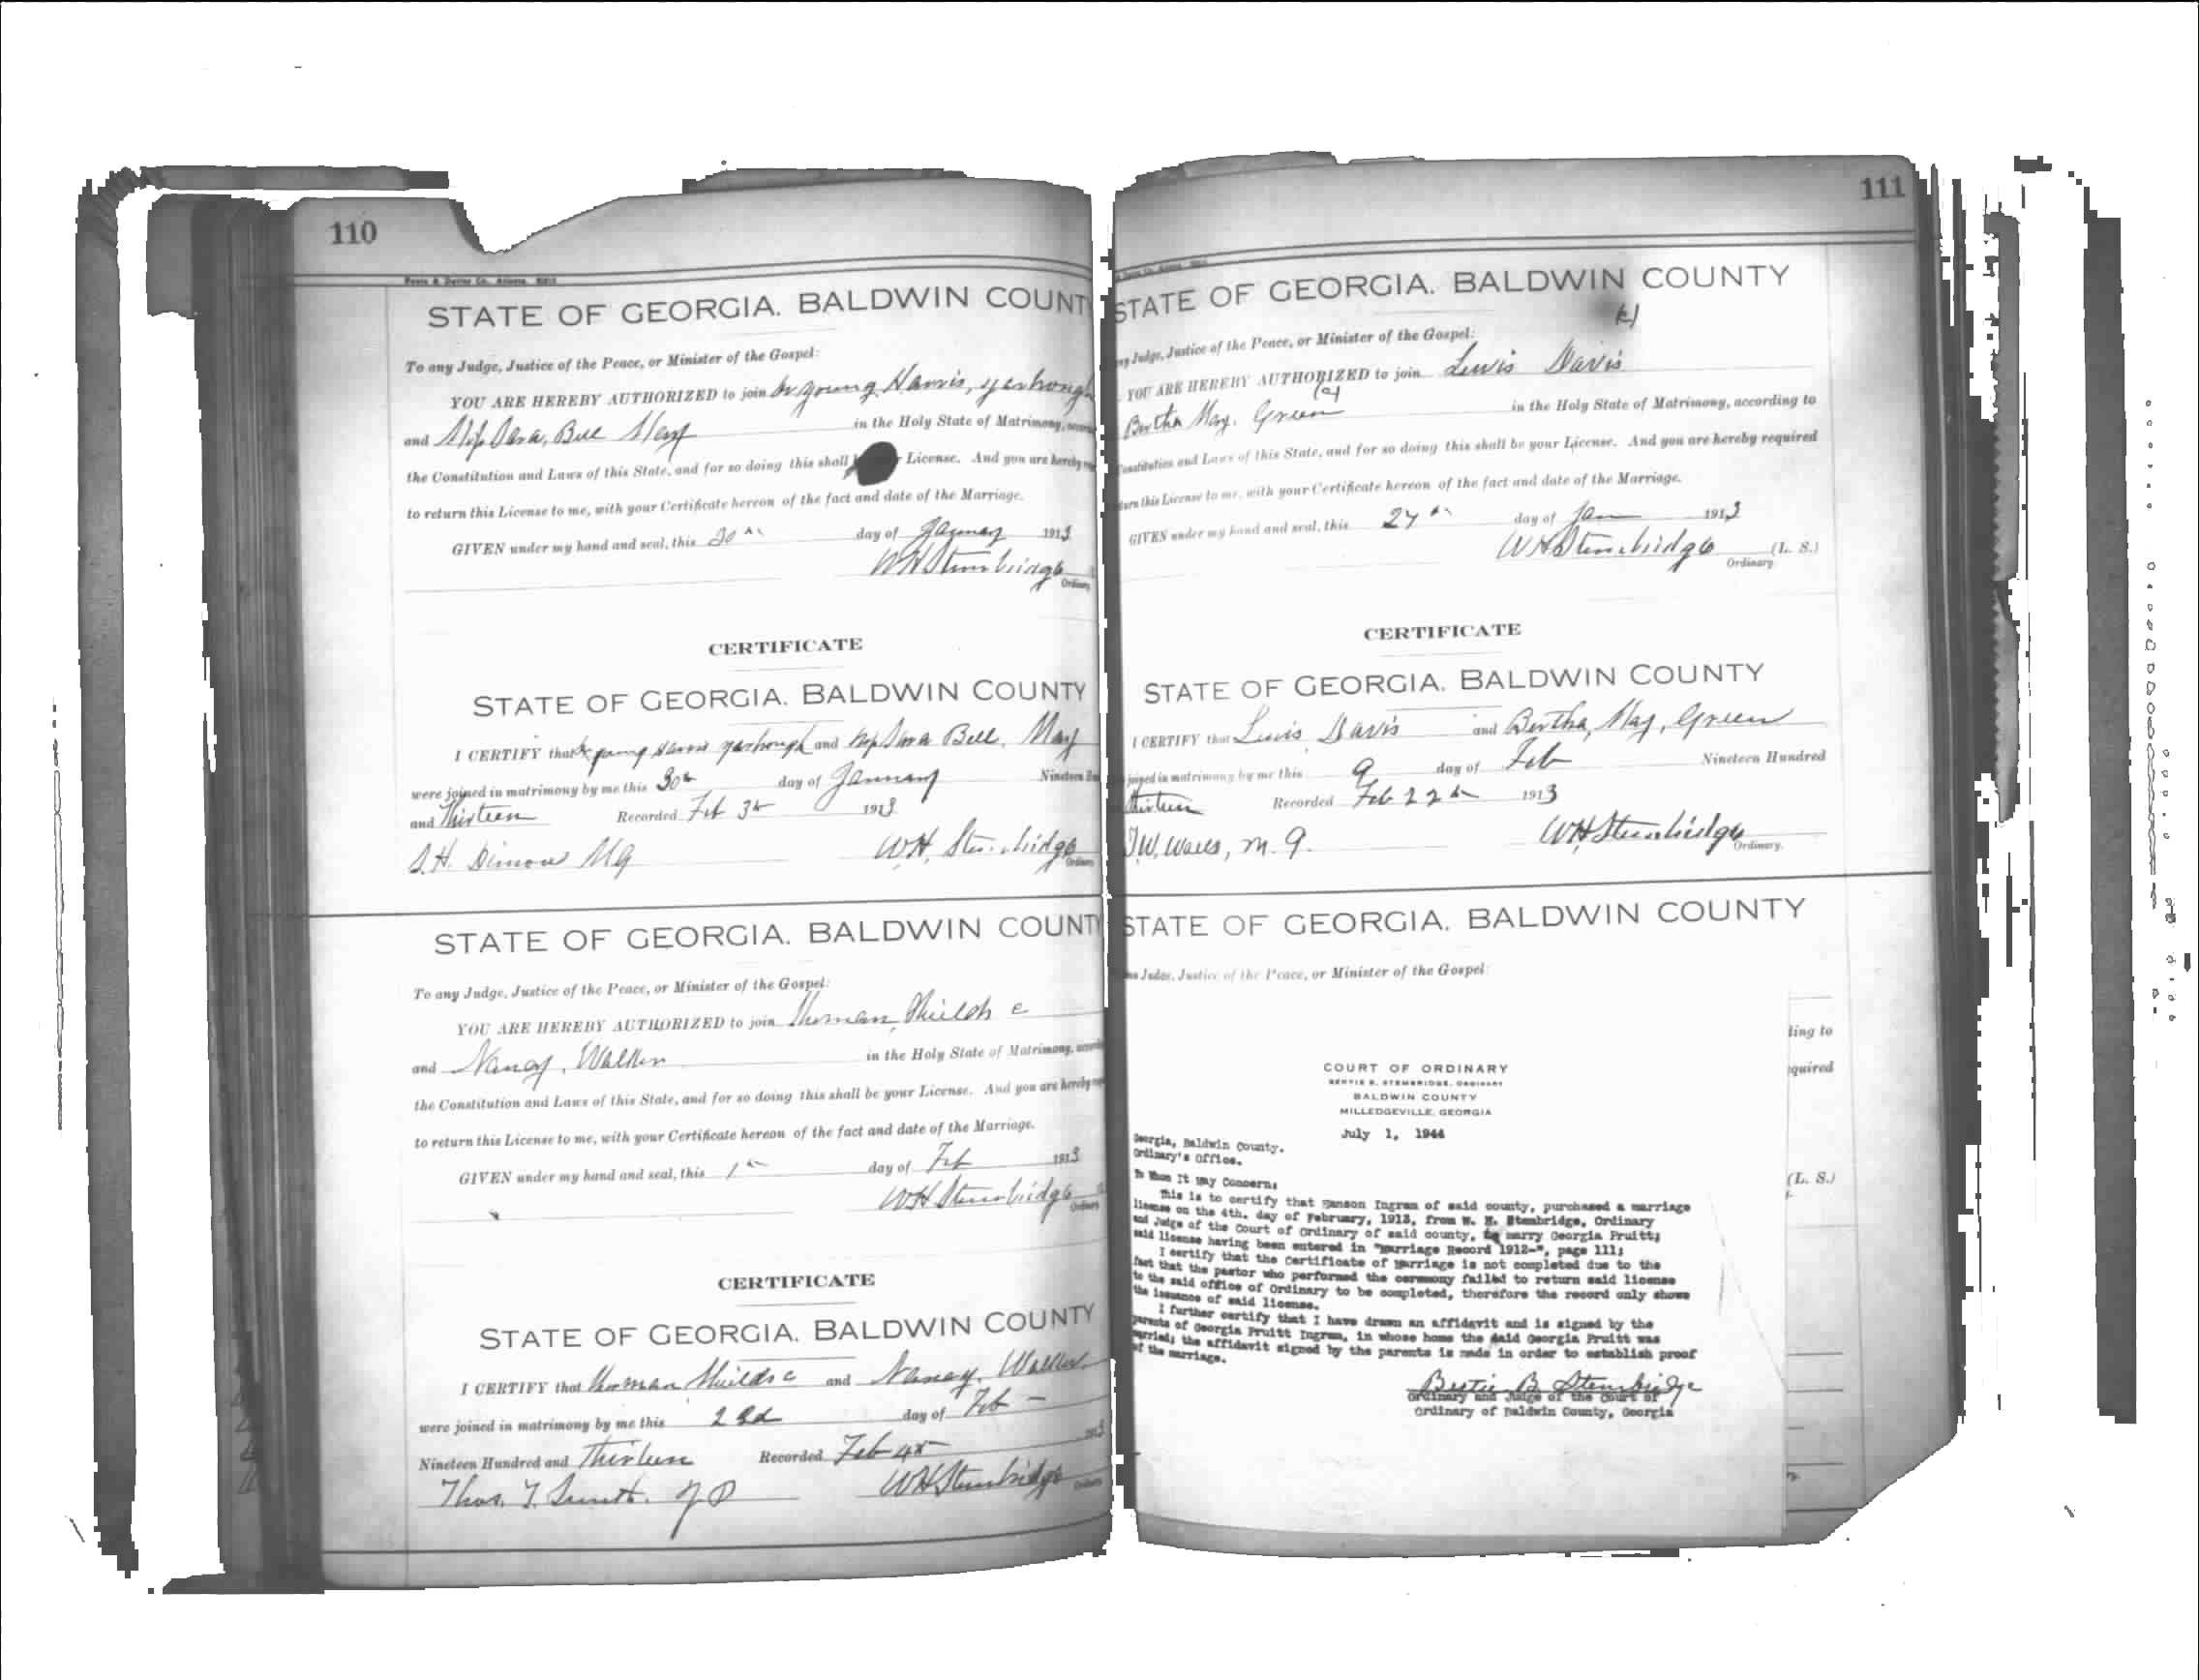 110
STATE OF GEORGIA. BALDWIN COUNT
To any Judge, Justice of the Peace, or Minister of the Gospel:
YOU ARE HEREBY AUTHORIZED to join Dr young Harris, yarbrough
and Bell May in the Holy State of Matrimony,
the Constitution and Laws of this State, and for so doing this shall License. And you are hereby
to return this License to me, with your Certificate hereon of the fact and date of the Marriage.
GIVEN under my hand and seal, this 30th day of January 1913
WH Stembridge
Ordinary
CERTIFICATE
STATE OF GEORGIA. BALDWIN COUNTY
I CERTIFY that Dr young Harris yarbrough and Bell, May
were joined in matrimony by me this 30th day of January Nineteen
and Thirteen Recorded Feb 3rd 1913
S.H. Dimon MG W.H. Stembridge
Ordinary
STATE OF GEORGIA. BALDWIN COUNTY
To any Judge, Justice of the Peace, or Minister of the Gospel:
YOU ARE HEREBY AUTHORIZED to join Thomas Shields c
and Nancy, Walker in the Holy State of Matrimony,
the Constitution and Laws of this State, and for so doing this shall be your License. And you are hereby
to return this License to me, with your Certificate hereon of the fact and date of the Marriage.
GIVEN under my hand and seal, this 1st day of Feb 1913
WH Stembridge
Ordinary
CERTIFICATE
STATE OF GEORGIA. BALDWIN COUNTY
I CERTIFY that Thomas Shields c and Nancy, Walker
were joined in matrimony by me this 2nd day of Feb -
Nineteen Hundred and Thirteen Recorded Feb 4th 1913
Thos. Y. Smith. J P WH Stembridge
111
STATE OF GEORGIA. BALDWIN COUNTY
Judge, Justice of the Peace, or Minister of the Gospel:
(c)
YOU ARE HEREBY AUTHORIZED to join Lewis Davis
(c)
Bertha May, Green in the Holy State of Matrimony, according to
Constitution and Laws of this State, and for so doing this shall be your License. And you are hereby required
this License to me, with your Certificate hereon of the fact and date of the Marriage.
GIVEN under my hand and seal, this day of Jan 1913
WH Stembridge (L. S.)
Ordinary
CERTIFICATE
STATE OF GEORGIA. BALDWIN COUNTY
I CERTIFY that Lewis Davis and Bertha, May, Green
joined in matrimony by me this 9 day of Feb Nineteen Hundred
thirteen Recorded Feb 22nd 1913
WH Stembridge
Ordinary.
T.W. Walls, M. G.
STATE OF GEORGIA. BALDWIN COUNTY
Judge, Justice of the Peace, or Minister of the Gospel:
ding to
quired
(L. S.)
COURT OF ORDINARY
BERTIE B. STEMBRIDGE, ORDINARY
BALDWIN COUNTY
MILLEDGEVILLE, GEORGIA
July 1, 1944
Georgia, Baldwin County.
Ordinary's Office.
To Whom It May Concern:
This is to certify that Manson Ingram of said county, purchased a marriage
license on the 4th. day of February, 1913, from W. H. Stembridge, Ordinary
and Judge of the Court of Ordinary of said county, to marry Georgia Pruitt;
said license having been entered in "Marriage Record 1912-", page 111;
I certify that the Certificate of Marriage is not completed due to the
fact that the pastor who performed the ceremony failed to return said license
to the said office of Ordinary to be completed, therefore the record only shows
the issuance of said license.
I further certify that I have drawn an affidavit and is signed by the
parents of Georgia Pruitt Ingram, in whose home the said Georgia Pruitt was
married; the affidavit signed by the parents is made in order to establish proof
of the marriage.
Bertie B. Stembridge
Ordinary and Judge of the Court of
Ordinary of Baldwin County, Georgia